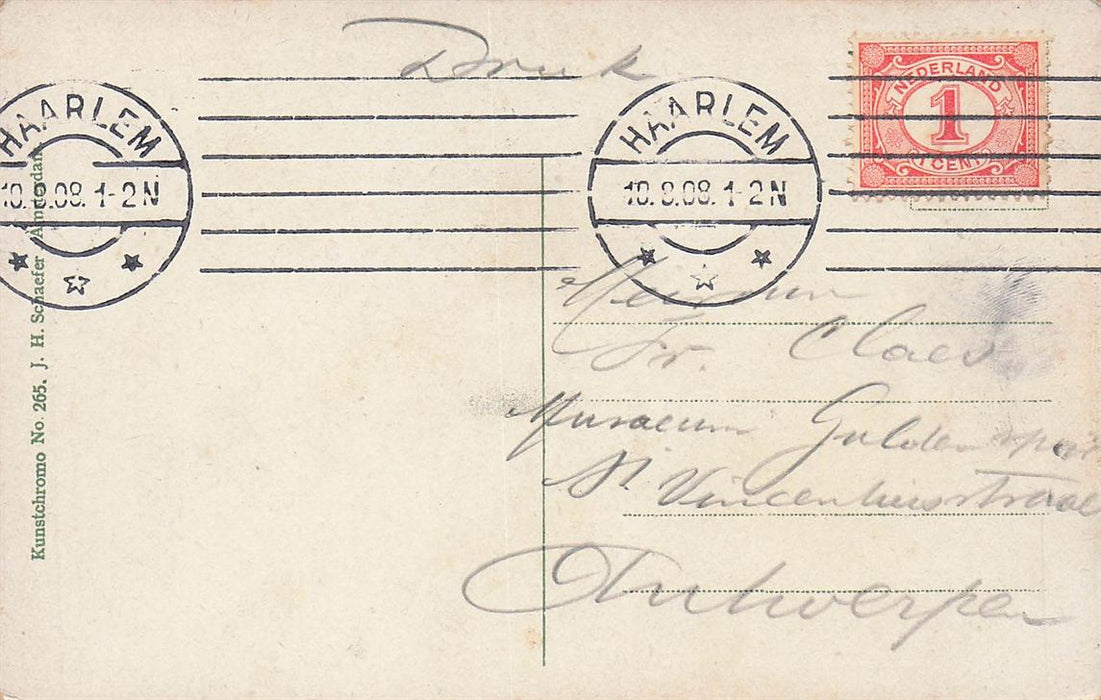 Druk
HAARLEM
10.8.08. 1-2 N
HAARLEM
10.8.08. 1-2 N
NEDERLAND
1
1 CENT
Fr. Claes
Musaeum Gulden
St Vincentiusstraat
Antwerpen
Kunstchromo No. 265. J. H. Schaefer Amsterdam